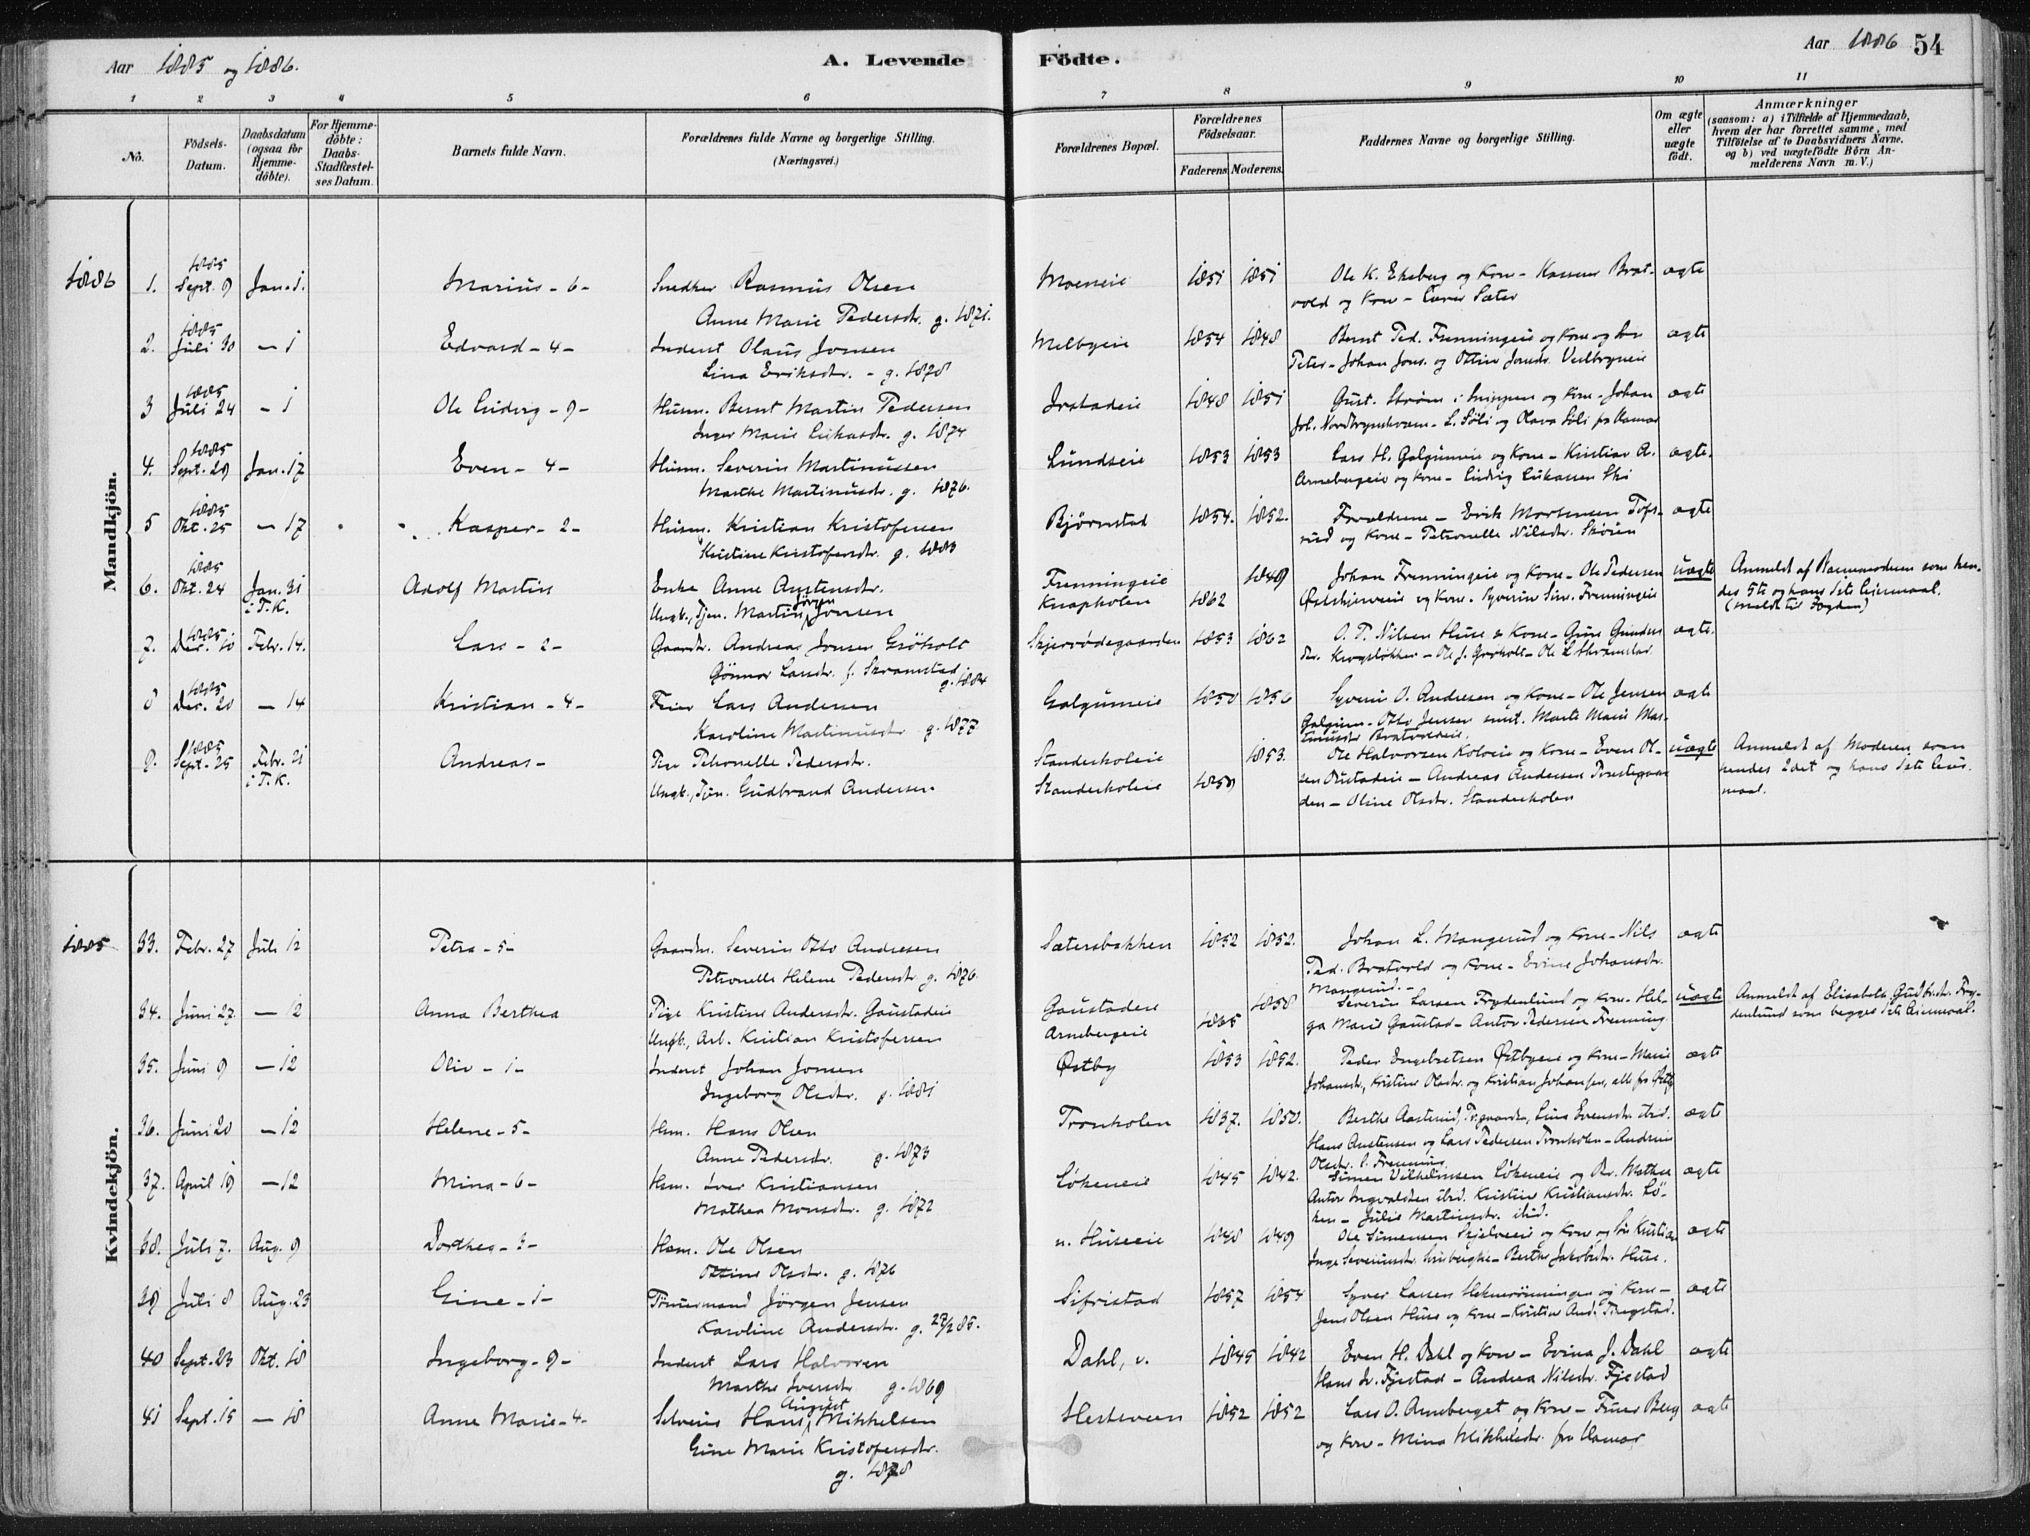 Aar 1885 og 1886.
A. Levende
Födte.
Aar 1886
54
1 2 3 4 5 6 7 8 9 10 11
No.
Födsels-Datum.
Daabsdatum (ogsaa for Hjemme-döbte).
For Hjemme-döbte: Daabs-Stadfæstel-ses Datum.
Barnets fulde Navn.
Forældrenes fulde Navne og borgerlige Stilling. (Næringsvei.)
Forældrenes Bopæl.
Forældrenes Födselsaar.
Faderens. Moderens.
Faddernes Navne og borgerlige Stilling.
Om ægte eller uægte födt.
Anmærkninger
(saasom: a) i Tilfælde af Hjemmedaab, hvem der har forrettet samme, med Tilföielse af to Daabsvidners Navne, og b) ved uægtefödte Börn An-melderens Navn m.V.)
Mandkjön.
1886
1. 1885 Sept. 9 Jan. 1. Marius - 6 - Snedker Rasmus Olsen Moeneie 1851 1851 Ole K. Ekeberg og Kone - Brat- ægte
Anne Marie Pedersdr. g. 1871. vold og Kone - Sæter
2. 1885 Juli 30 - 1 Edvard - 4 - Inderst Olaus Jonsen Melbyeie 1854 1848 Bernt Ped. Frenningeie og Kone og ægte
Lina Eriksdr. - g. 1878 Peter - Johan Jons. og Ottine Jonsdr.
3 1885 Juli 24 - 1 Ole Ludvig - 9 - Husm. Bernt Martin Pedersen 1848 1851 Gust. Strøm i og Kone - Johan ægte
Inger Marie g. 1874 L. Söli og Olava Söli fra Hamar
4. 1885 Sept. 29 Jan. 17 Even - 4 - Husm. Severin Martinussen Lundseie 1853 1853 Lars H. Galgumeie og Kone - Kristian A. ægte.
Marthe Martinusdr. g. 1876. Arnebergeie og Kone - Ludvig Lukassen Ski
5 1885 Okt. 25 - 17 Kasper - 2 - Husm. Kristian Kristofersen Bjørnstad 1854. 1852. Forældrene - Erik Mortensen Tofs- ægte
Kristine Kristofersdr. g. 1883 rud og Kone - Petronelle Nilsdr.
6. 1885 Okt. 24 Jan. 31 i T.K. Adolf Martin Enke Anne Austensdr. Frenningeie 1849 Johan Frenningeie og Kone - Ole Pedersen uægte Anmeldt af Barnemoderen som hen-
Ungk., Tjen. Martin Jörgen Jonsen Knapholen 1862 og Kone. Syverin Sim. Frenningeie des 5te og hans 1ste Leiermaal. (Meldt til Fogden)
7. 1885 Dec. 10 Febr. 14. Lars - 2 - Gaardbr. Andreas Jonsen Gröholt Skjerrødegaarden 1853 1862 O. P. Nilsen Huse & Kone - ægte.
Gönnor Larsdr. f. Skramstad g. 1884 Krogsløkken - Ole J. Grøholt - Ole L. Skramstad
8 1885 Dec. 20 - 14 Kristian - 4 - Lars Andersen Galgumeie 1850 1856 Syverin O. Andresen og Kone - Ole Jensen ægte
Karoline Martinusdr. g. 1877 Galgum - Otto Jensen smst. Marte Marie Mar-
tinusdr Bratvoldeie.
9. 1885 Sept. 25 Febr. 21 i T.K. Andreas - Pige Petronelle Pedersdr. Standerholeie 1853. Ole Halvorsen Koloeie og Kone - Even Ol- uægte Anmeldt af Moderen som
Ungk., Tjen. Gudbrand Andersen. Standerholeie 1859 sen - Andreas Andersen Prestegaar hendes 2det og hans 1ste Leier-
den - Oline Olsdr. Standerholen maal.
Kvindekjön.
1885
33. Febr. 27 Juli 12 Petra - 5 - Gaardm. Severin Otto Andresen Sætersbakken 1852 1852. Johan L. Mangerud og Kone - Nils ægte
Petronelle Helene Pedersdr. g. 1876. Ped. Bratvold og Kone - Evine Johansdr. Mangerud. -
34. Juni 27. - 12 Anna Berthea Pige Kristine Andersdr. Gaustadeie Gaustadeie 1858 Severin Larsen Frydenlund og Kone - Hel- uægte Anmeldt af Elisabeth Gudbr.dr. Fry-
Ungk., Arb. Kristian Kristofersen Arnebergeie 1865 ga Marie Gaustad - Anton Pedersen Frenning denlund som begges 1ste Leiermaal.
35. Juni 9 - 12 Oliv - 1 - Inderst Johan Jonsen Østby 1853 1852. Peder Engebretsen Østbyeie og Kone - Marie ægte
Ingeborg Olsdr. g. 1881 Johansdr., Kristine Olsdr. og Kristian Johansen, alle fra Østby
36. Juni 20 - 12 Helene - 5 - Hsm. Hans Olsen Tronholen 1837. 1850. Berthe Aasterud, Lina Evensdr. ibid. ægte
Anne Pedersdr. g. 1873 Hans Austensen og Lars Pedersen Tronholen - Andrine
37. April 19 - 12 Mina - 6 - Hsm. Iver Kristiansen Løkeneie 1845 1842. Simen Vilhelmsen Løkeneie og Mathea ægte
Mathea Monsdr. g. 1872 Anton Ingvaldsen ibid. Kristine Kristiansdr. Lö-
ken - Julie Martinsdr. ibid.
38. Juli 7. Aug. 9 Dorthea - 3 - Hsm. Ole Olsen n. Huseeie 1848 1849 Ole Simensen Skjelveie og Kone og Kristian ægte
Ottine Olsdr. g. 1876 Inge Severinsdr. - Berthe Jakobsdr. Huse.
39 Juli 8 Aug. 23 Gine - 1 - Tömmermand Jörgen Jensen Sifristad 1857 1854 Syver Larsen og Kone - ægte
Karoline Andersdr. g. 27/2 85. Jens Olsen Huse og Kone - Kristian And.
40 Sept. 23 Okt. 18 Ingeborg - 9 - Inderst Lars Halvorsen Dahl, v. 1845 1842 Even H. Dahl og Kone - Evina J. Dahl ægte
Marthe Iversdr g. 1869 Hans Iv. Fjestad - Andrea Nilsdr. Fjestad
41 Sept. 15 - 18 Anne Marie - 4 - Selveier Hans August Mikkelsen Hesteveen 1852 1852 Lars O. Arneberget og Kone - Berg ægte
Gine Marie Kristofersdr. g. 1878 og Kone - Mina Mikkelsdr. fra Hamar